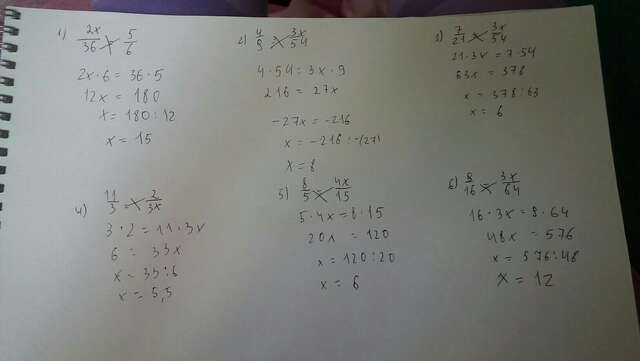 1) 2x/36 = 5/6
2x · 6 = 36 · 5
12x = 180
x = 180 : 12
x = 15
2) 4/9 = 3x/54
4 · 54 = 3x · 9
216 = 27x
-27x = -216
x = -216 : (-27)
x = 8
3) 7/21 = 3x/54
21 · 3x = 7 · 54
63x = 378
x = 378 : 63
x = 6
4) 11/3 = 2/3x
3 · 2 = 11 · 3x
6 = 33x
x = 33 : 6
x = 5,5
5) 8/5 = 4x/15
5 · 4x = 8 · 15
20x = 120
x = 120 : 20
x = 6
6) 8/16 = 3x/64
16 · 3x = 8 · 64
48x = 576
x = 576 : 48
x = 12